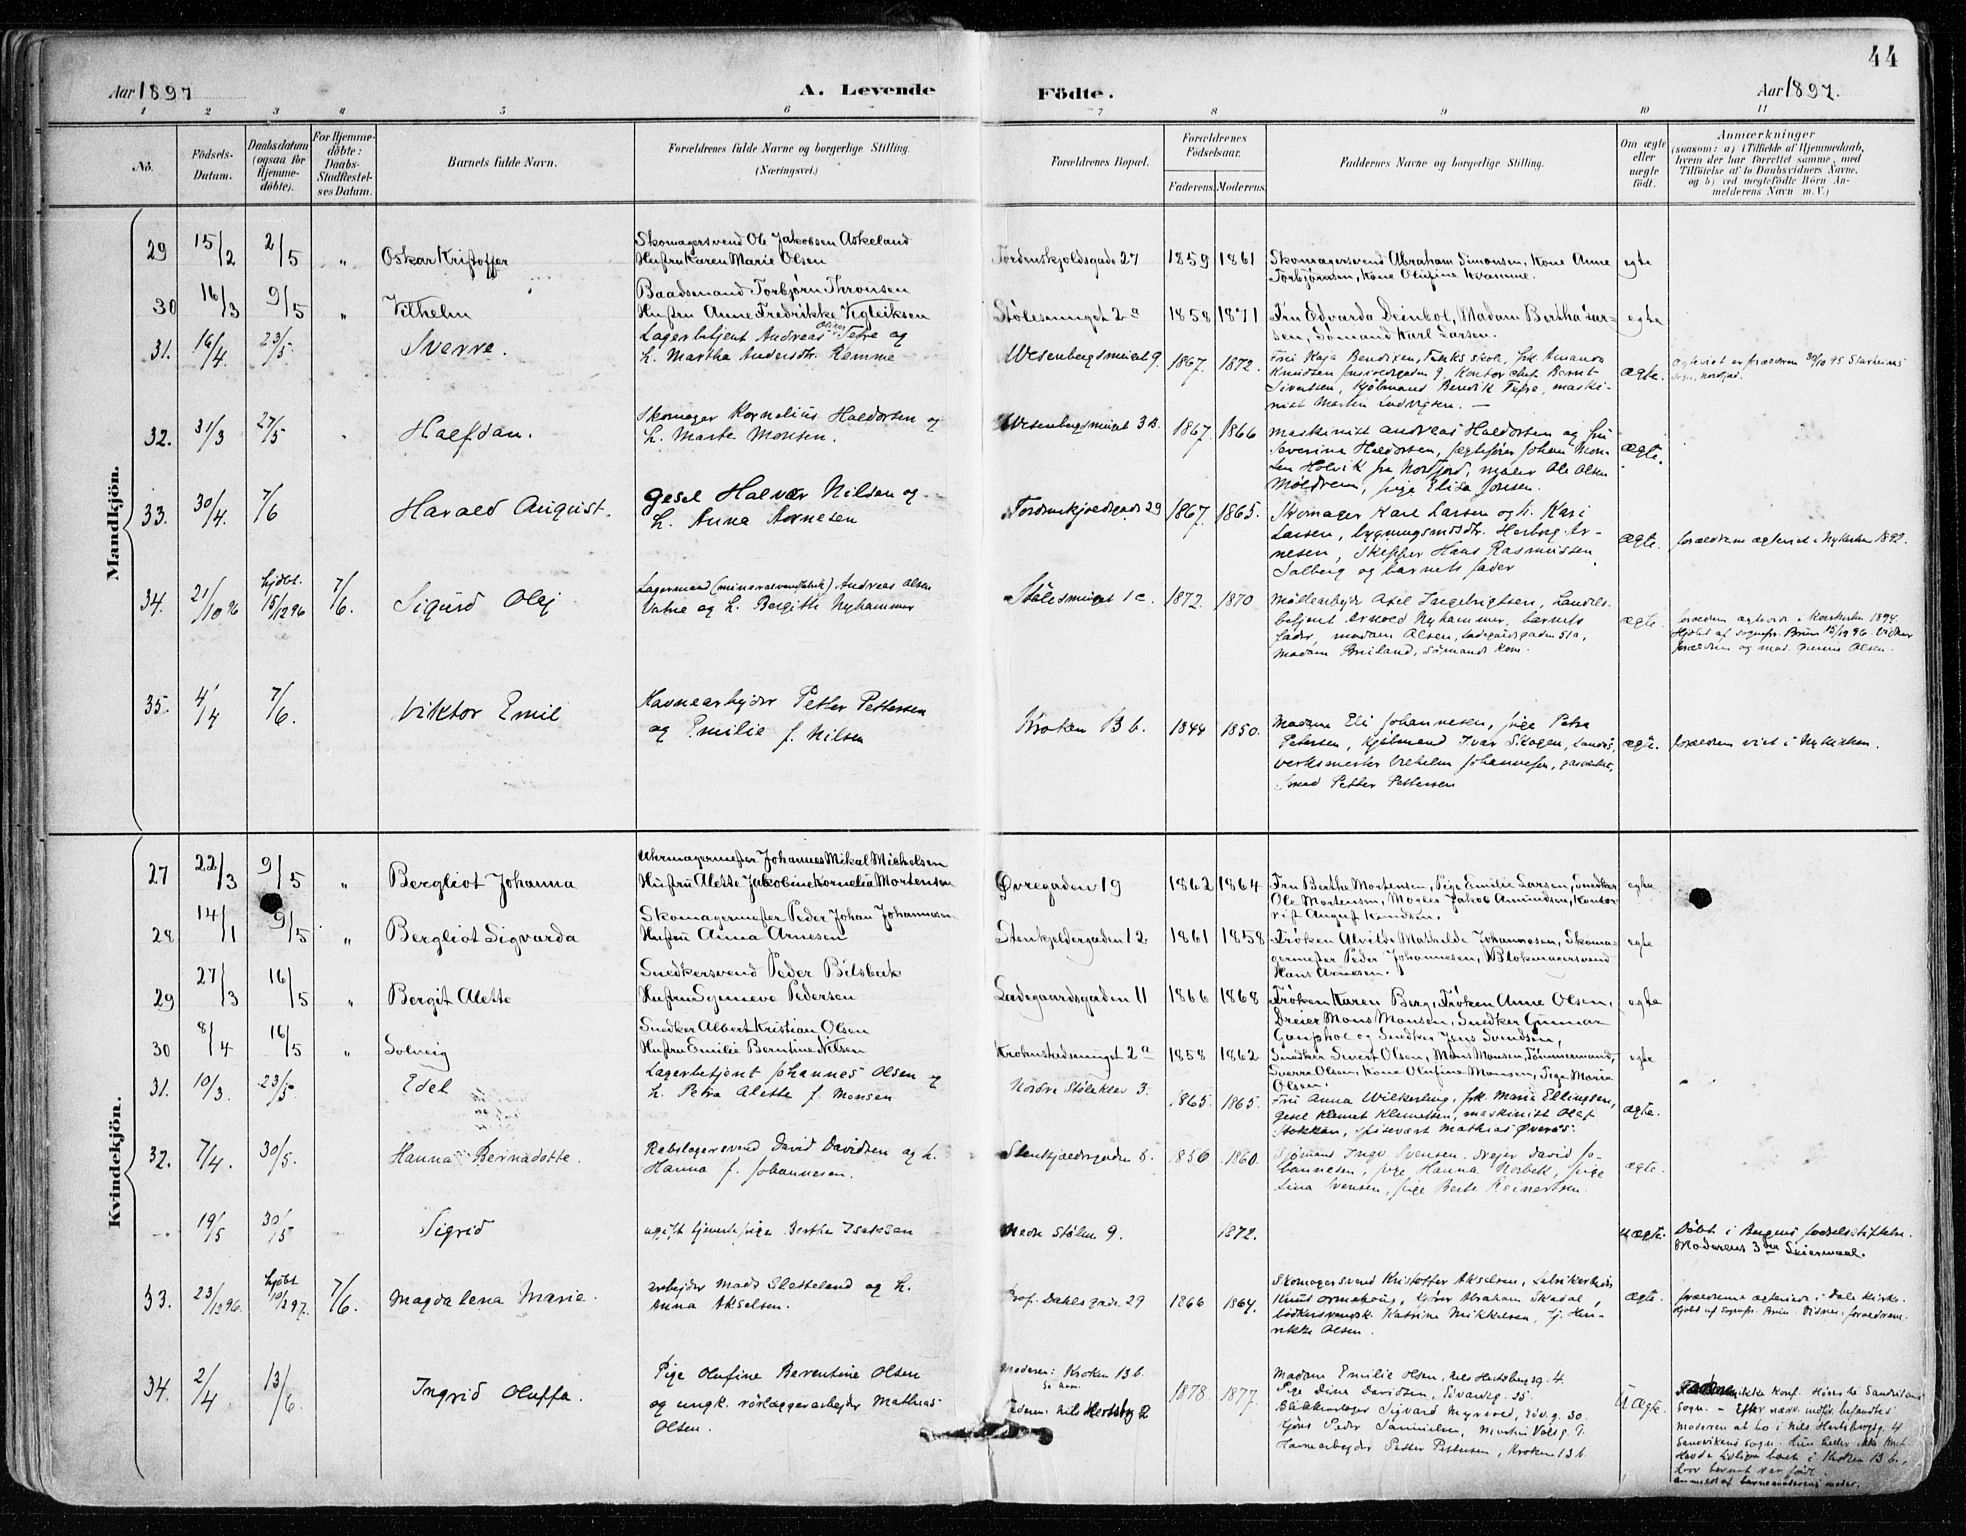 44
Aar 1897
A. Levende Födte.
Aar 1897.
1 2 3 4 5 6 7 8 9 10 11
No.
Födsels-
Datum.
Daabsdatum
(ogsaa for
Hjemme-
döbte).
For Hjemme-
döbte:
Daabs-
Stadfæstel-
ses Datum.
Barnets fulde Navn.
Forældrenes fulde Navne og borgerlige Stilling.
(Næringsvei.)
Forældrenes Bopæl.
Forældrenes
Födselsaar.
Faderens. Moderens.
Faddernes Navne og borgerlige Stilling.
Om ægte
eller
uægte
födt.
Anmærkninger
(saasom: a) i Tilfælde af Hjemmedaab,
hvem der har forrettet samme, med
Tilföielse af to Daabsvidners Navne,
og b) ved uægtefödte Börn An-
melderens Navn m. V.)
Mandkjön.
29 15/2 2/5 " Oskar Kristoffer
Skomagersvend Ole Jakobsen Askeland
Hustru Karen Marie Olsen
Tordenskjoldsgade 27 1859 1861
Skomagersvend Abraham Simonsen, Kone Anne
Torbjørnsen, Kone Olufine Kvamme.
egte
30 16/3 9/5 " Vilhelm
Baadsmand Torbjørn Thronsen
Hustru Anne Fredrikke Vigleiksen
Stølesmuget 2a 1858 1871
Fru Edvarda Deinbol, Madam Bertha Lar-
sen, Sømand Karl Larsen.
egte
31. 16/4 23/5. Sverre.
Lagerbetjent Andreas Tefre og
h. Martha Andersdtr. Remme
Wesenbergsmuget 9. 1867. 1872.
Fru Kaja Bendixen,
Knudsen 9. Kontorchef Bernt
Sivertsen, Kjøbmand Bendik Tefre, maski-
nist Martin Ludvigsen. —
ægte.
32. 31/3 27/5 Halfdan.
Skomager Kornelius Haldorsen og
h. Marte Monsen.
Wesenbergsmuget 3B. 1867. 1866
maskinist Andreas Haldorsen og fru
Severina Haldorsen, Johan Mon-
sen Holvik fra Nordfjord, maler Ole Olsen
Møldrem, pige Elisa Jonsen.
ægte.
33. 30/4. 7/6 Harald August.
gesel Halvar Nilsen og
h. Anna Arnesen
Tordenskjoldsgade 29 1867. 1865.
Skomager Karl Larsen og h. Kari
Larsen, Herborg Ar-
nesen, Skipper Hans Rasmussen
Solberg og barnets fader
ægte. forældrene ægteviet i Nykirken 1892.
34. 21/10 96 hjdbt. 15/12 96 7/6. Sigurd Olej
Lagermand (mineralvandfabrik) Andreas Olsen
Vatne og h. Bergithe Nyhammer
Stølesmuget 1c. 1872. 1870
Møllearbejder Axel Ingebrigtsen, Landels-
betjent Arnold Nyhammer, barnets
fader, madam Olsen, Ladegaardsgaden 51a,
Madam Breiland, sømands kone.
ægte. forældrene ægteviede i Korskirken 1894.
Hjdbt af sognepr. Bruun 15/12 96. Vidner
forældrene og mad. Olsen.
35. 4/4 7/6. Viktor Emil
Havnearbejder Petter Pettersen
og Emilie f. Nilsen
Kroken 13 b. 1844 1850.
Madam Eli Johannesen, pige Petra
Petersen, Kjøbmand Ivar Skogen,
verksmester Vilhelm Johannesen, gasverket,
Smed Petter Pettersen
ægte. forældrene viet i Nykirken.
Kvindekjön.
27 22/3 9/5 " Bergliot Johanna
Uhrmagermester Johannes Mikal Michelsen
Hustru Alette Jakobine Kornelia Mortensen
Øvregaden 19 1862 1864
Fru Berthe Mortensen, Pige Emilie Larsen, Snedker
Ole Mortensen, Mægler Jakob Amundsen, Kontor-
ist August Knudsen.
egte
28 14/1 9/5 " Bergliot Sigvarda
Skomagermester Peder Johan Johannesen
Hustru Anna Arnesen
Stenkjeldergaden 12 1861 1858
Frøken Alvilde Mathilde Johannesen, Skoma-
germester Peder Johannesen, Blokmagersvend
Hans Arnesen.
egte
29 27/3 16/5 " Bergit Alette
Snedkersvend Peder Bilsbak
Hustru Synneve Pedersen
Ladegaardsgaden 11 1866 1868
Frøken Karen Berg, Frøken Anne Olsen,
Dreier Mons Monsen, Snedker Gunnar
Gangstoe og Snedker Jens Svendsen,
egte
30 8/4 16/5 " Solveig
Snedker Albert Kristian Olsen
Hustru Emilie Berntine Nilsen
Krohnstadsmuget 2a 1858 1862
Snedker Sivert Olsen, Mons Monsen, Tømmermand,
Sverre Olsen, Kone Olufine Monsen, Pige Maria
Olsen.
egte
31. 10/3. 23/5. Edel
Lagerbetjent Johannes Olsen og
h. Petra Alette f. Monsen
Nordre Stølekleven 3. 1865. 1865.
Fru Anna Wilkerling, frk. Maria Ellingsen,
gesel Klemet Klemetsen, maskinist Olaf
Stokken, spisevært Mathias Øveraas.
ægte.
32. 7/4. 30/5. Hanna Bernadotte.
Rebslagersvend David Davidsen og h.
Hanna f. Johannesen.
Stenkjeldergaden 8. 1856 1860.
Sjømand Inge Svensen, drejer David Jo-
hannesen, pige Hanna Norbek, pige
Lina Svensen, pige Berte Reinertsen.
ægte.
— 19/5 30/5 Sigrid
ugift tjenestepige Berthe Isaksen
Nedre Stølen 9. 1872.
uægte. Døbt i Bergens fødselsstiftelse.
Moderens 3die Leiermaal.
33. 23/12 96. hjdbt 10/2 97. 7/6. Magdalena Marie.
arbejder Mads Sletteland og h.
Anna Akselsen.
Prof. Dahlsgade 29 1866 1864.
Skomagersvend Kristoffer Akselsen, fabrikarbeider
Knut Ormehoug, Abraham Skadal,
Katrine Mikkelsen, tj. Hen-
rikke Olsen.
ægte. forældrene ægteviede i Dale Kirke.
Hjdbt af Sognepr. Bruun. Vidner: forældrene.
34. 2/4 13/6. Ingrid Oluffa.
Pige Olufine Berentine Olsen
og ungk. rørlæggerarbejder Mathias
Olsen.
Moderen: Kroken 13 b.
Faderen: Nils Hertzbg 2 1878 1877.
Madam Emilie Olsen, Nils Hertzbergsg. 4.
Pige Dina Davidsen, Sivardsg. 35.
Blikkenslager Sigvard Myrvold, 30.
Peder Samuelsen, Martin Volsg. 7.
Havnearbejder Petter Pettersen, Kroken 13 b.
Uægte. Faderen ikke konf.
Sogn. — Efter indf. befandtes
moderen at bo i Nils Hertzbergsg. 4
Sandvikens Sogn. Hun heller ikke konf.
Havde tidligere boet i Kroken 13 b.,
hvor barnet var født.
anmeldt af barnemoderens moder.